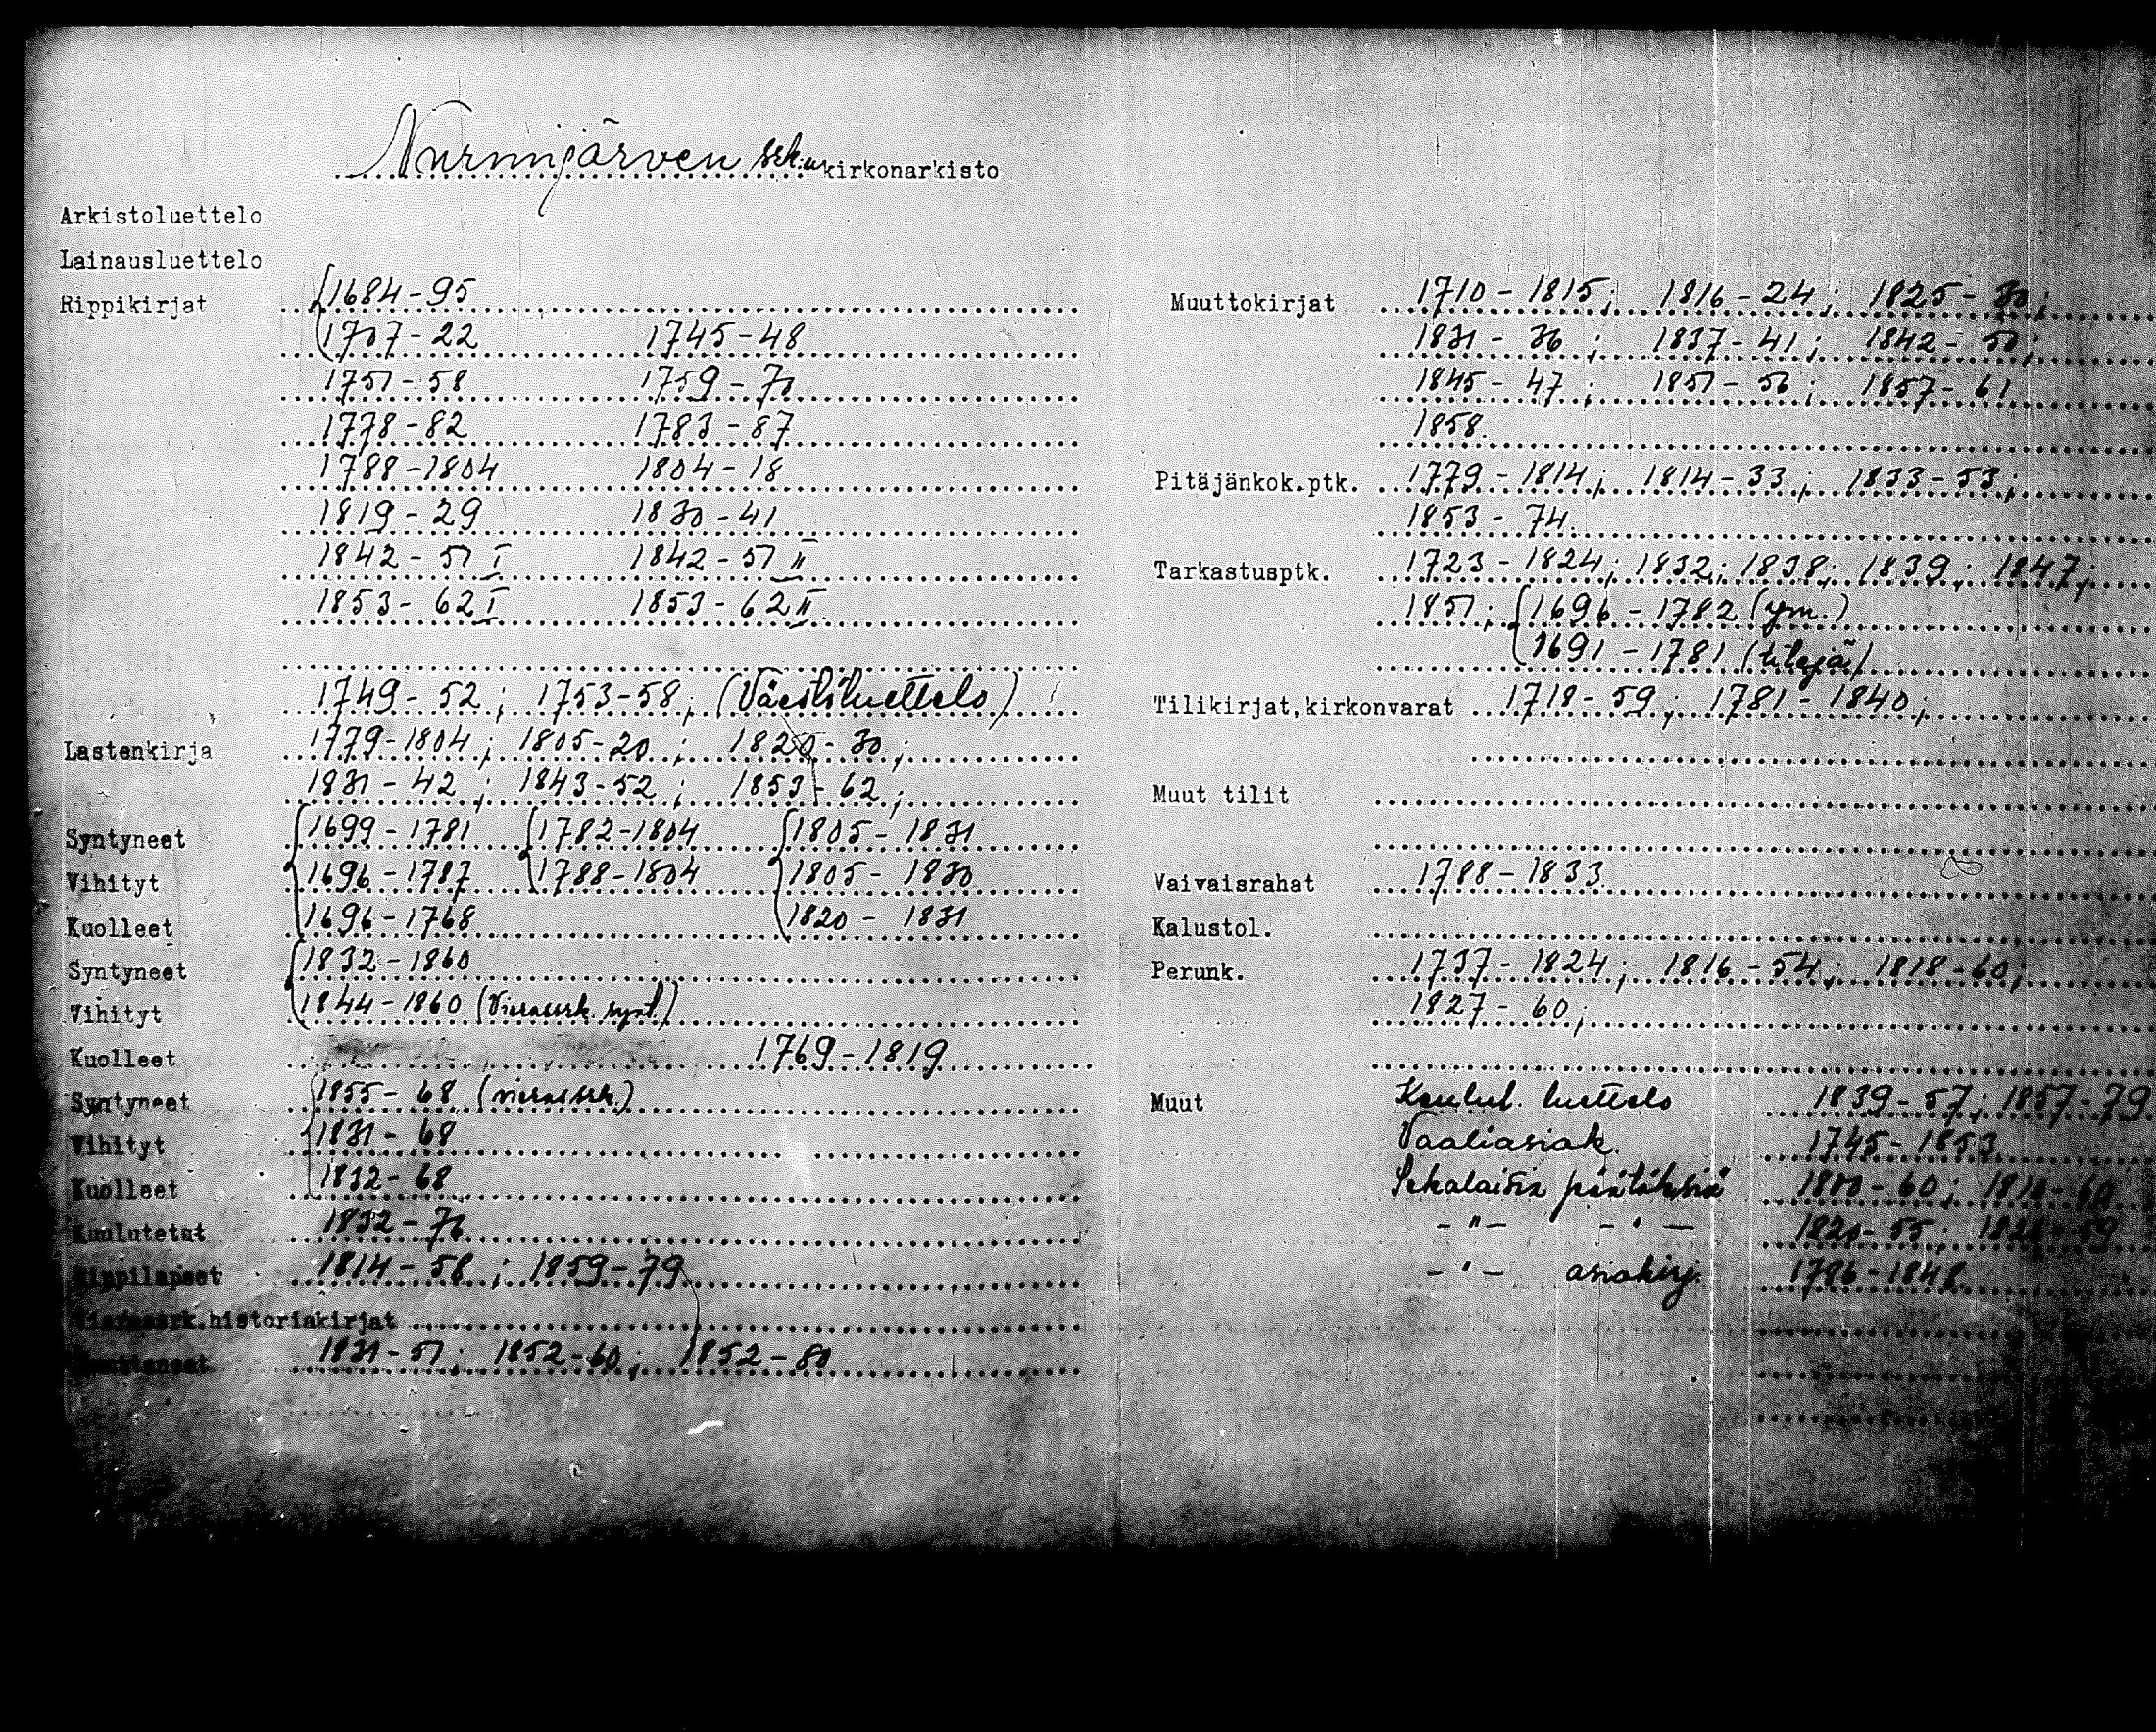 Nurmijärven srk:n kirkonarkisto
Arkistoluettelo
Lainausluettelo
Rippikirjat 1684-95
1707-22 1745-48
1751-58 1759-70
1778-82 1783-87
1788-1804 1804-18
1819-29 1830-41
1842-51 I 1842-51 II
1853-62 I 1853-62 II
1749-52; 1753-58; (Väestöluettelo)
Lastenkirja 1779-1804; 1805-20; 1820-30;
1831-42; 1843-52; 1853-62;
Syntyneet 1699-1781 1782-1804 1805-1831
Vihityt 1696-1787 1788-1804 1805-1830
Kuolleet 1696-1768 1820-1831
Syntyneet 1832-1860
Vihityt 1844-1860 (Vierassrk. synt.)
Kuolleet 1769-1819
Syntyneet 1855-68 (vierassrk.)
Vihityt 1831-68
Kuolleet 1832-68
Kuulutetut
Rippilapset 1814-58; 1859-79
Vierassrk.historiakirjat
1831-51; 1852-60; 1852-80
Muuttokirjat 1710-1815; 1816-24; 1825-30;
1831-36; 1837-41; 1842-50;
1845-47; 1851-56; 1857-61
1858.
Pitäjänkok.ptk. 1779-1814; 1814-33; 1833-53;
1853-74.
Tarkastusptk. 1723-1824; 1832; 1838; 1839; 1847;
1851; 1696-1782 (ym.)
1691-1781 (tilejä)
Tilikirjat,kirkonvarat 1718-59; 1781-1840;
Muut tilit
Vaivaisrahat 1788-1833
Kalustol.
Perunk. 1737-1824; 1816-54; 1818-60;
1827-60;
Muut Kuulut. luettelo 1839-57; 1857-79
Vaaliasiak. 1745-1853
Sekalaisia päätöksiä 1800-60;
-"- -"- 1820-55;
-"- asiakirj. 1786-1848